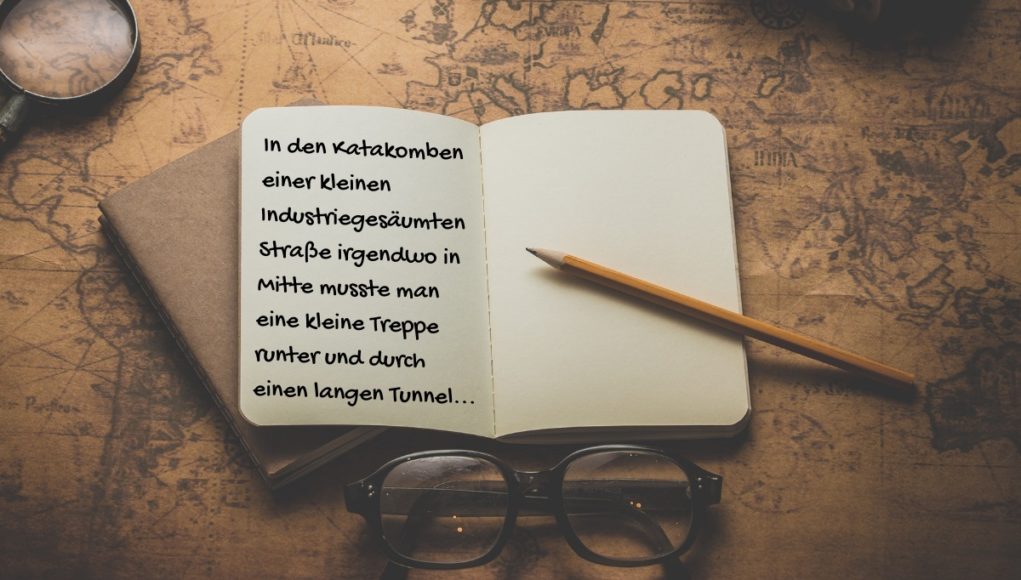 In den Katakomben
einer kleinen
Industriegesäumten
Straße irgendwo in
Mitte musste man
eine kleine Treppe
runter und durch
einen langen Tunnel...
EUROPA
INDIA